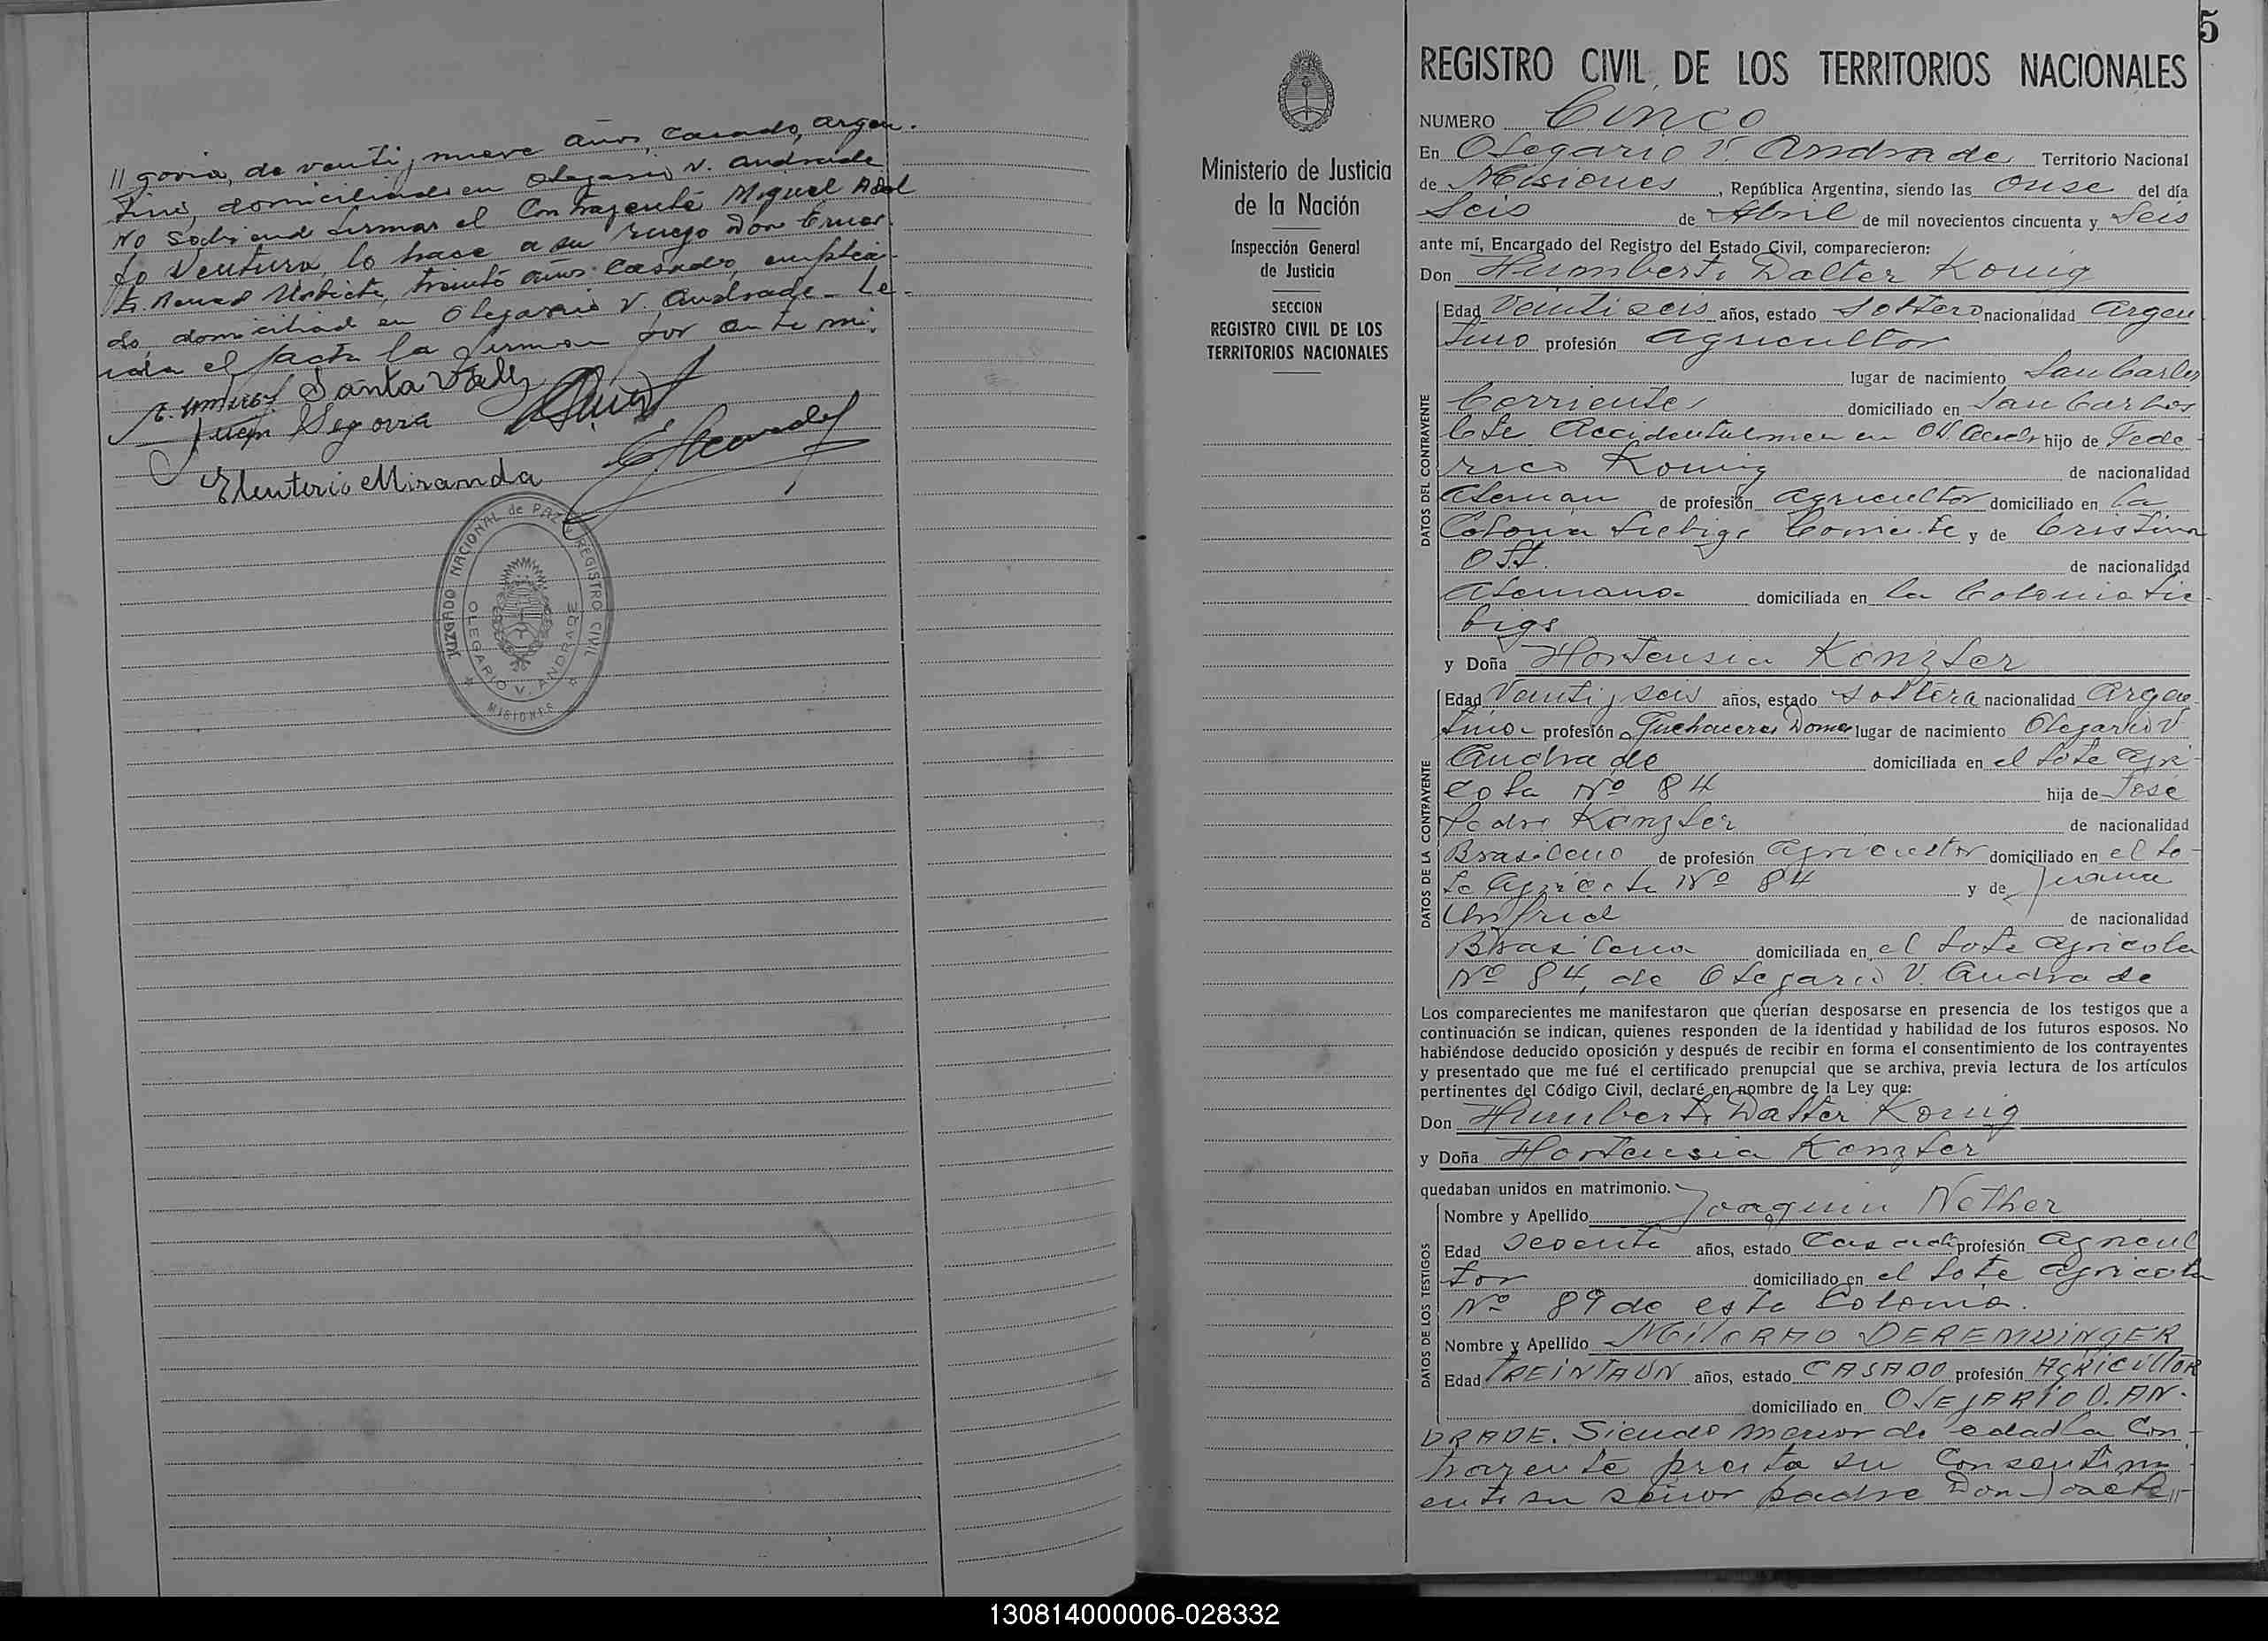 // govia, de veinti y nueve años, casado, argen.
tino, domiciliado en Olegario V. Andrade
No sabiendo firmar el Contrayente Miguel
to Ventura, lo hace a su ruego Don
treinta años casado, emplea-
do, domiciliado en Olegario V. Andrade - Le-
ida el acta la firman por ante mi.
Santa
Juan Segovia
Eleuterio Miranda
JUZGADO NACIONAL de PAZ y REGISTRO CIVIL
OLEGARIO V. ANDRADE
MISIONES
Ministerio de Justicia
de la Nación
Inspección General
de Justicia
SECCION
REGISTRO CIVIL DE LOS
TERRITORIOS NACIONALES
5
REGISTRO CIVIL DE LOS TERRITORIOS NACIONALES
NUMERO Cinco
En Olegario V. Andrade Territorio Nacional
de Misiones, República Argentina, siendo las onse del día
Seis de Abril de mil novecientos cincuenta y Seis
ante mí, Encargado del Registro del Estado Civil, comparecieron:
Don Humberto Walter Konig
DATOS DEL CONTRAYENTE
Edad Veinti seis años, estado Soltero nacionalidad Argen
tino profesión agricultor
lugar de nacimiento San Carlos
Corrientes domiciliado en San Carlos
Cte. Accidentalmen en O.V. Andr hijo de Fede
rico Konig de nacionalidad
Aleman de profesión agricultor domiciliado en la
Colonia Liebigs Corriente y de Cristina
Ott. de nacionalidad
Alemana domiciliada en la Colonia Lie-
bigs
y Doña Hortensia Kanzler
DATOS DE LA CONTRAYENTE
Edad Veinti y seis años, estado Soltera nacionalidad Argen
tina profesión Quehaceres Domes lugar de nacimiento Olegario V
Andrade domiciliada en el lote Agri-
cola Nº 84 hija de José
Pedro Kanzler de nacionalidad
Brasileno de profesión agricultor domiciliado en el lo-
te Agricola Nº 84 y de Juana
Unfried de nacionalidad
Brasilena domiciliada en el lote agricola
Nº 84, de Olegario V. Andrade
Los comparecientes me manifestaron que querían desposarse en presencia de los testigos que a
continuación se indican, quienes responden de la identidad y habilidad de los futuros esposos. No
habiéndose deducido oposición y después de recibir en forma el consentimiento de los contrayentes
y presentado que me fué el certificado prenupcial que se archiva, previa lectura de los artículos
pertinentes del Código Civil, declaré en nombre de la Ley que:
Don Humberto Walter Konig
y Doña Hortensia Kanzler
quedaban unidos en matrimonio.
DATOS DE LOS TESTIGOS
Nombre y Apellido Joaquin Nether
Edad años, estado Casado profesión Agricul
tor domiciliado en el lote agricola
Nº 89 de esta Colonia.
Nombre y Apellido DEREMSINGER
Edad TREINTAUN años, estado CASADO profesión AGRICULTOR
domiciliado en OLEGARIO V. AN-
DRADE. Siendo menor de edad la Con-
trayente presta su Consentimi-
ento su señor padre Don
130814000006-028332